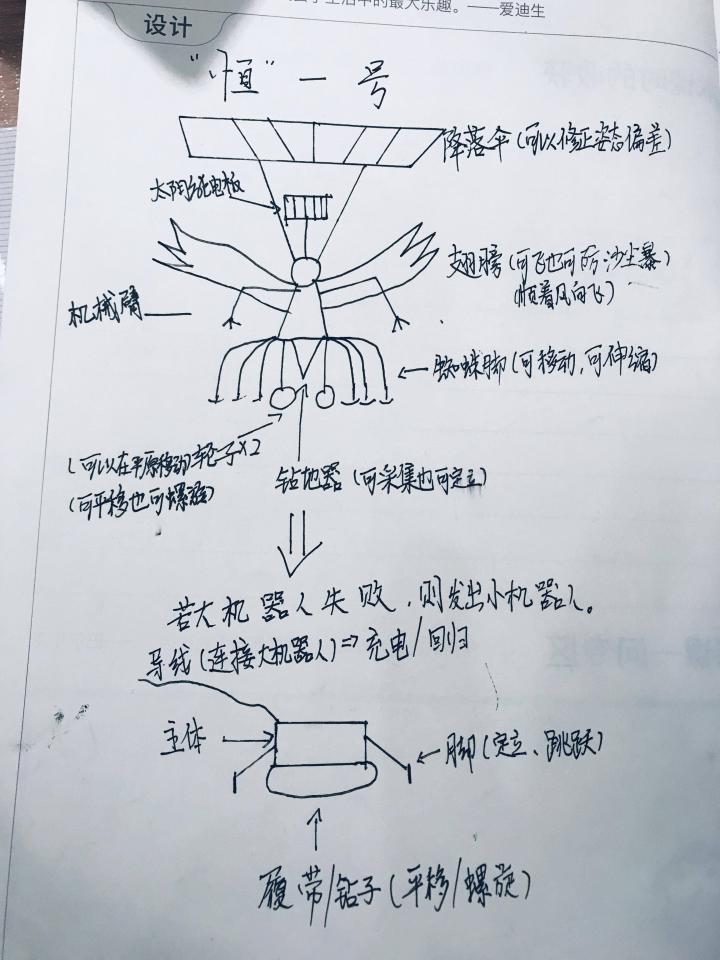 生活中的最大乐趣。——爱迪生
设计
"恒"一号
降落伞(可以修正姿态偏差)
太阳能电板
翅膀(可飞也可防沙尘暴)
(顺着风向飞)
机械臂
蜘蛛脚(可移动,可伸缩)
(可以在平原移动)轮子×2
(可平移也可螺旋)
钻地器(可采集也可定立)
若大机器人失败,则发出小机器人。
导线(连接大机器人)⇒充电/回归
主体
脚(定立、跳跃)
履带/钻子(平移/螺旋)